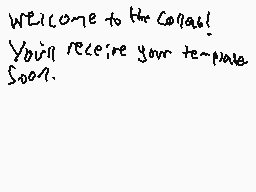 Welcome to the Collab!
You'll receive your template
Soon.